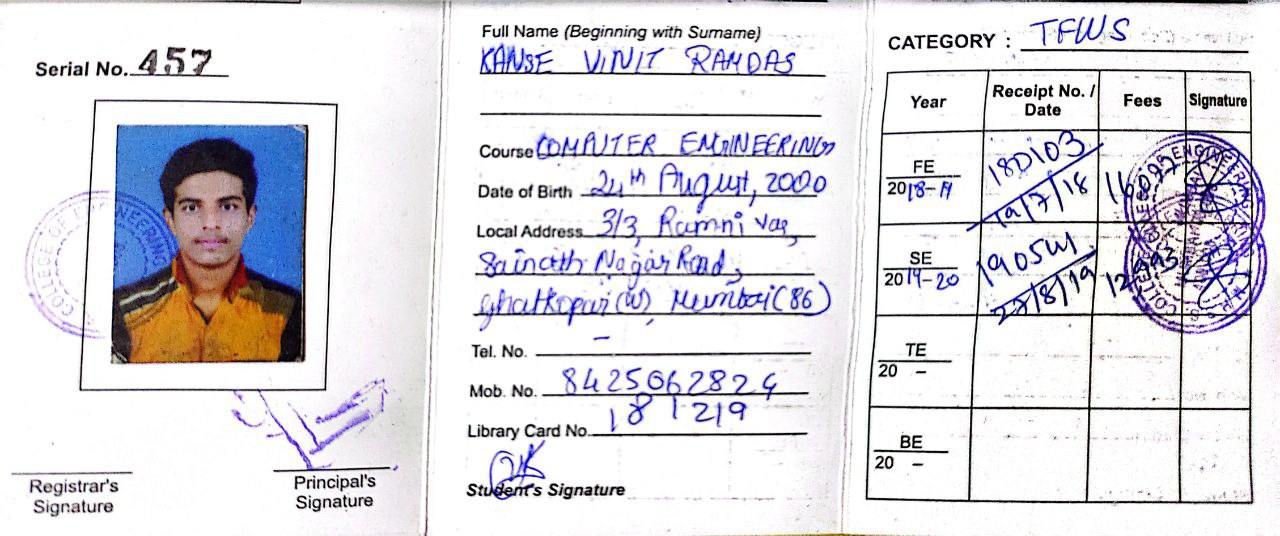 Serial No. 457
COLLEGE OF ENGINEERING
Registrar's
Signature
Principal's
Signature
Full Name (Beginning with Surname)
KANSE VINIT RAMDAS
Course COMPUTER ENGINEERING
Date of Birth 24th August, 2000
Local Address 3/3, Ramnivas,
Sainath Nagar Road,
Ghatkopar(W), Mumbai(86)
Tel. No. –
Mob. No. 8425062824
Library Card No. 181219
Student's Signature
CATEGORY : TFWS
Year Receipt No. / Date Fees Signature
FE 2018-19 180103 19/7/18
SE 2019-20 27/8/19
TE 20 –
BE 20 –